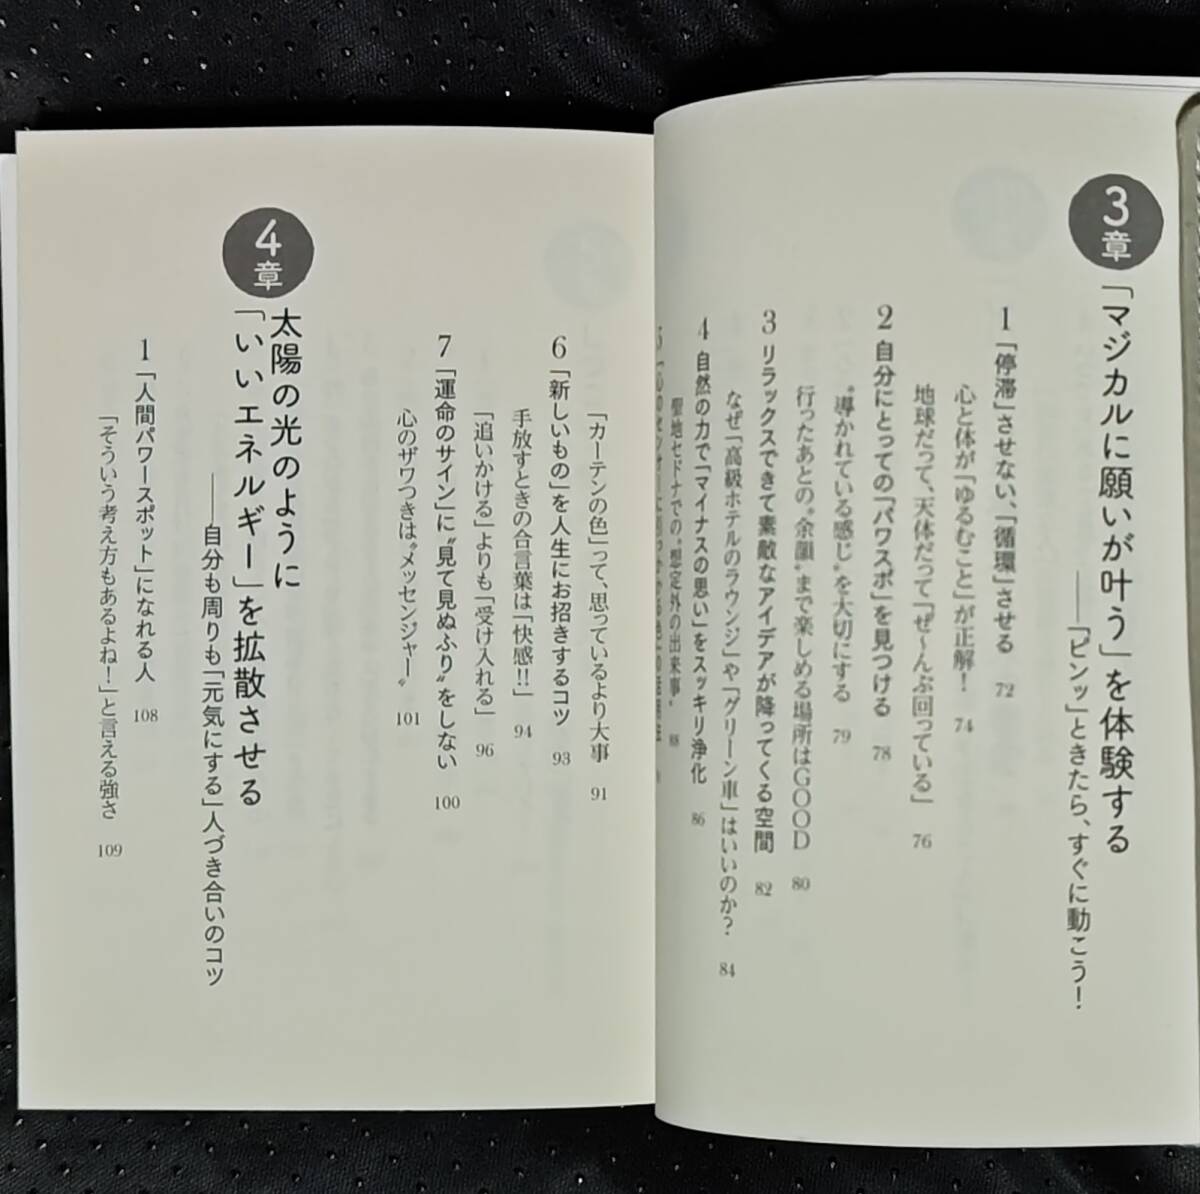 3章
「マジカルに願いが叶う」を体験する
――「ピンッ」ときたら、すぐに動こう！
1 「停滞」させない、「循環」させる 72
心と体が「ゆるむこと」が正解！ 74
地球だって、天体だって「ぜ〜んぶ回っている」 76
2 自分にとっての「パワスポ」を見つける 78
〝導かれている感じ〟を大切にする 79
行ったあとの〝余韻〟まで楽しめる場所はGOOD 80
3 リラックスできて素敵なアイデアが降ってくる空間 82
なぜ「高級ホテルのラウンジ」や「グリーン車」はいいのか？ 84
4 自然の力で「マイナスの思い」をスッキリ浄化 86
聖地セドナでの〝想定外の出来事〟 88
5 「心のセンサーに引っかかる色」の
「カーテンの色」って、思っているより大事 91
6 「新しいもの」を人生にお招きするコツ 93
手放すときの合言葉は「快感!!」 94
「追いかける」よりも「受け入れる」 96
7 「運命のサイン」に〝見て見ぬふり〟をしない 100
心のザワつきは〝メッセンジャー〟 101
4章
太陽の光のように
「いいエネルギー」を拡散させる
――自分も周りも「元気にする」人づき合いのコツ
1 「人間パワースポット」になれる人 108
「そういう考え方もあるよね！」と言える強さ 109